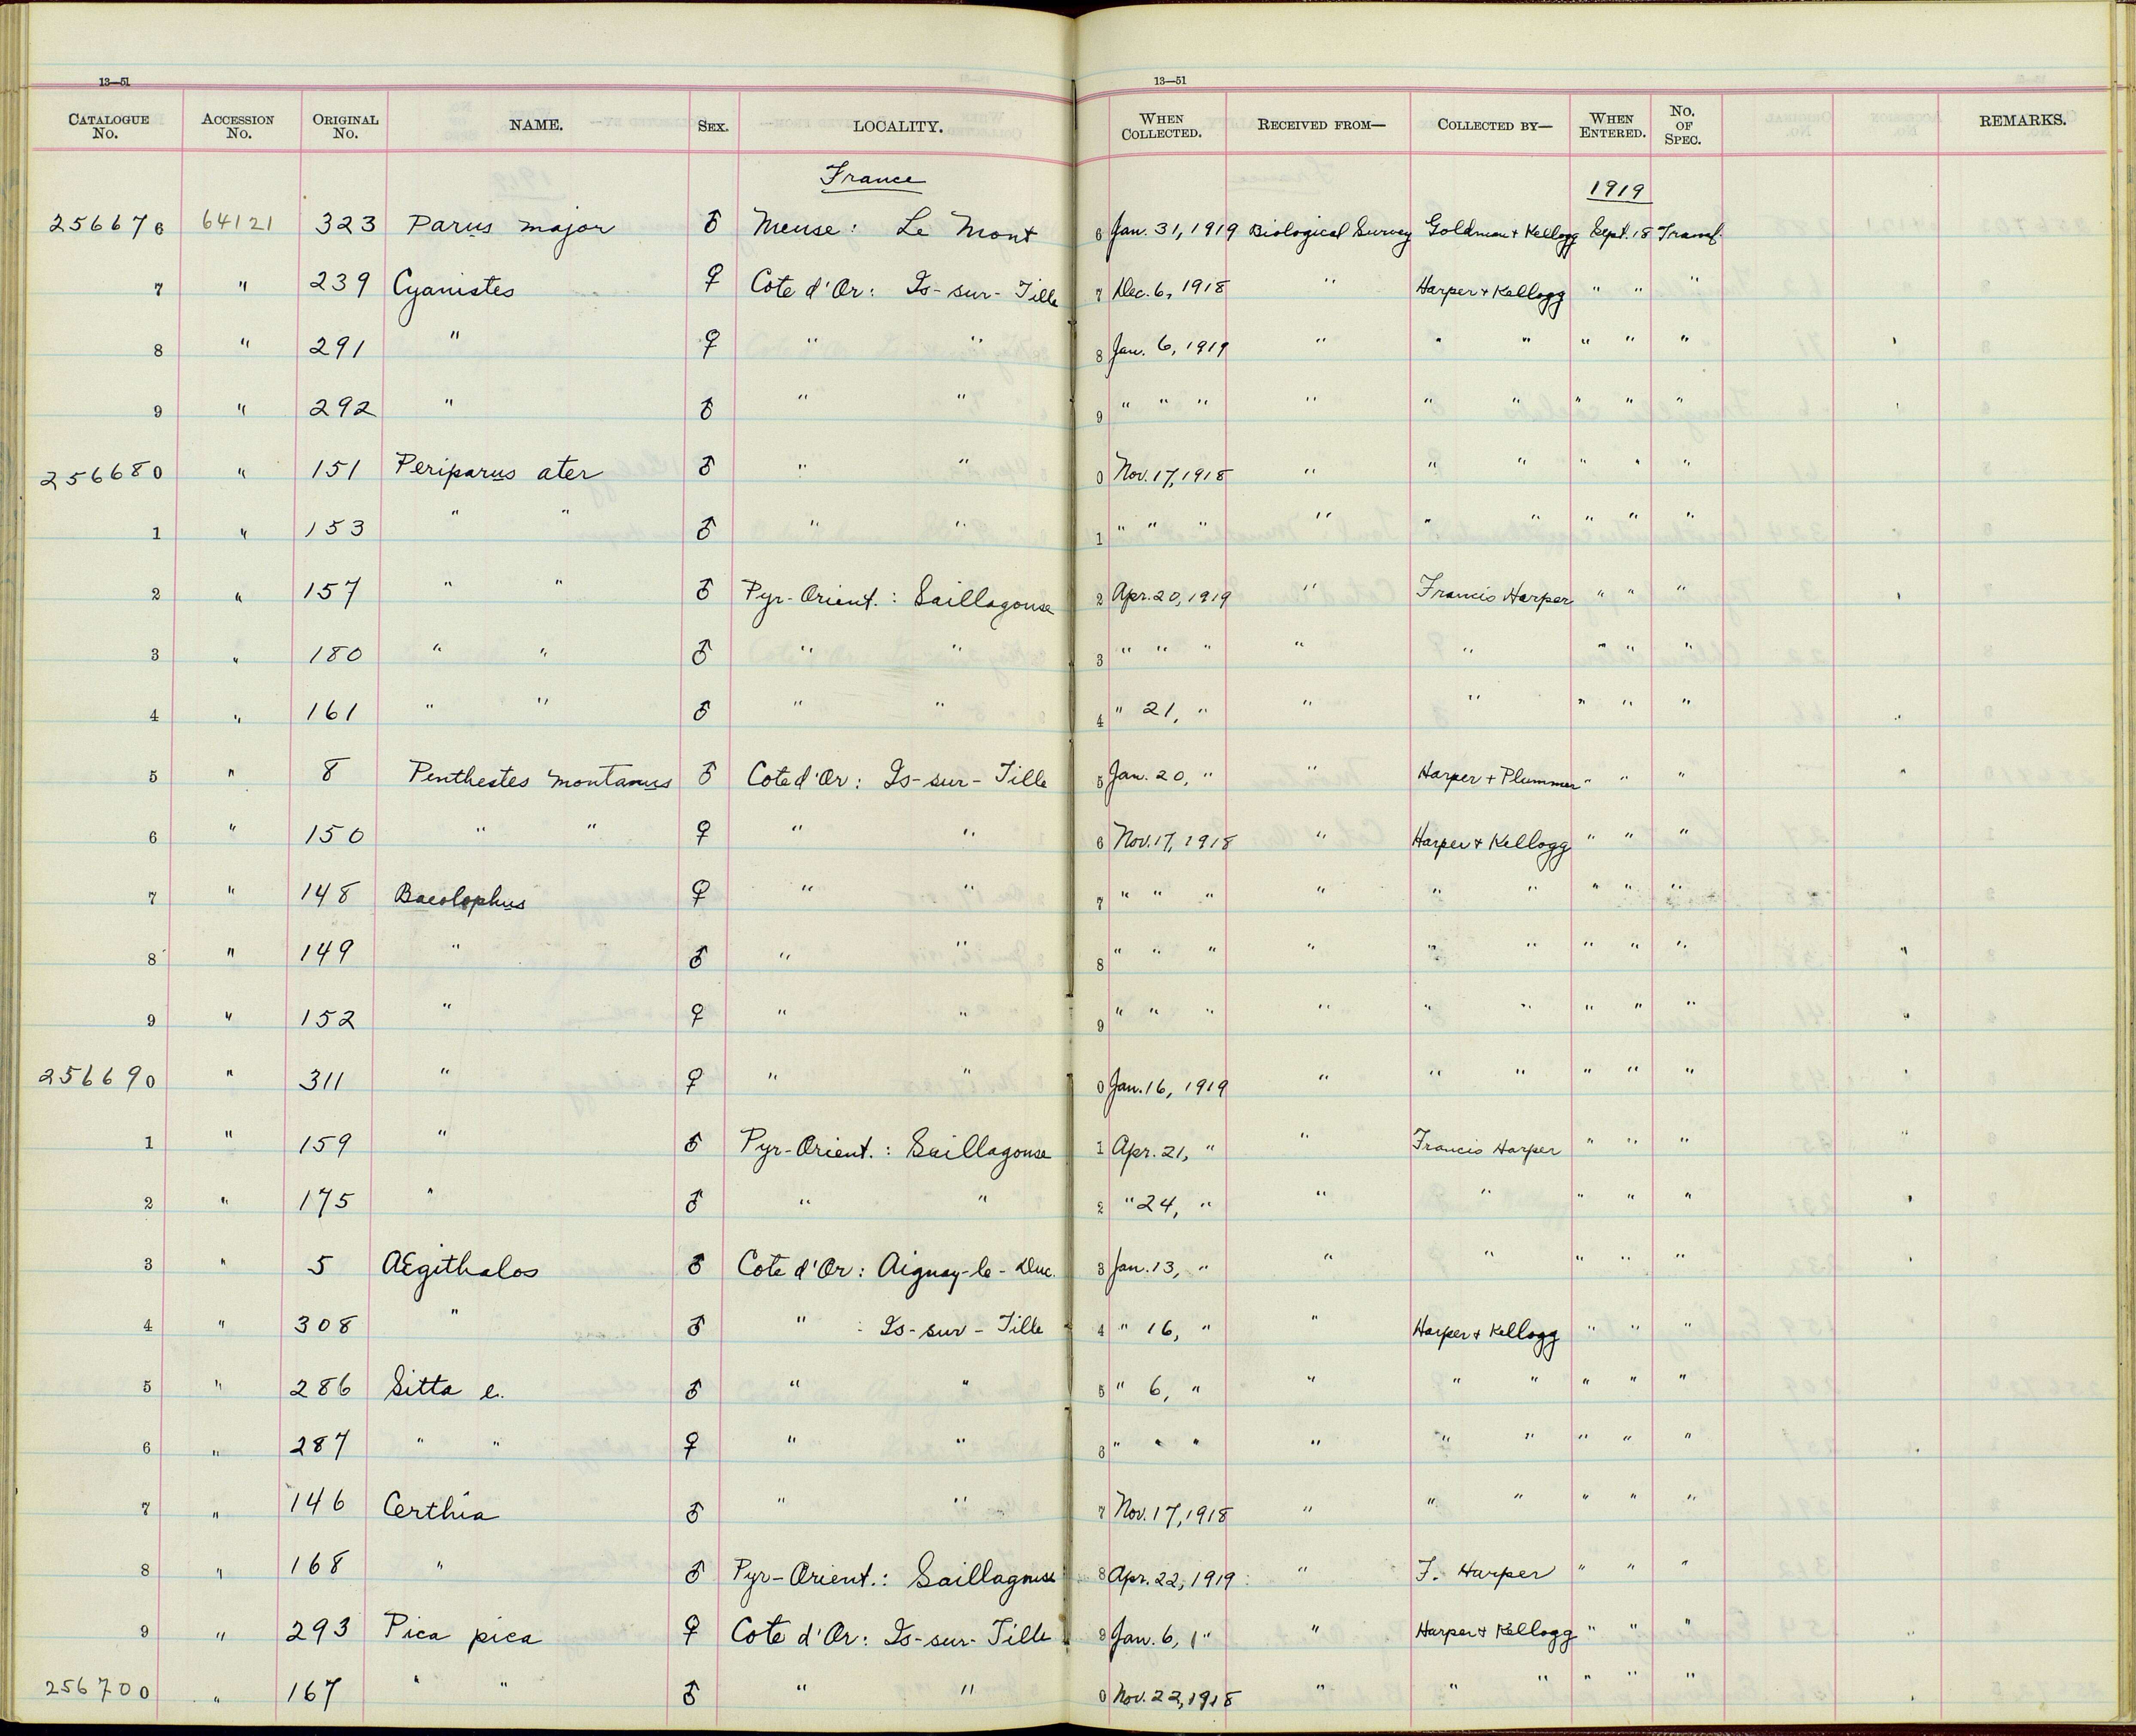 13—51 13—51
CATALOGUE No. ACCESSION No. ORIGINAL No. NAME. SEX. LOCALITY. WHEN COLLECTED. RECEIVED FROM— COLLECTED BY— WHEN ENTERED. No. OF SPEC. REMARKS.
France 1919
256676 64121 323 Parus major ♂ Meuse: Le Mont 6 Jan. 31, 1919 Biological Survey Goldman + Kellogg Sept. 18 Transf.
7 " 239 Cyanistes ♀ Cote d'Or: Is-sur-Tille 7 Dec. 6, 1918 " Harper + Kellogg " " "
8 " 291 " ♀ " " 8 Jan. 6, 1919 " " " " " "
9 " 292 " ♂ " " 9 " " " " " " " " "
256680 " 151 Periparus ater ♂ " " 0 Nov. 17, 1918 " " " " " "
1 " 153 " " ♂ " " 1 " " " " " " " " "
2 " 157 " " ♂ Pyr-Orient.: Saillagouse 2 Apr. 20, 1919 " Francis Harper " " "
3 " 180 " " ♂ " " 3 " " " " " " " "
4 " 161 " " ♂ " " 4 " 21, " " " " " "
5 " 8 Penthestes montanus ♂ Cote d'Or: Is-sur-Tille 5 Jan. 20, " " Harper + Plummer " " "
6 " 150 " " ♀ " " 6 Nov. 17, 1918 " Harper + Kellogg " " "
7 " 148 Baeolophus ♀ " " 7 " " " " " " " " "
8 " 149 " ♂ " " 8 " " " " " " " " "
9 " 152 " ♀ " " 9 " " " " " " " " "
256690 " 311 " ♀ " " 0 Jan. 16, 1919 " " " " " "
1 " 159 " ♂ Pyr-Orient.: Saillagouse 1 Apr. 21, " " Francis Harper " " "
2 " 175 " ♂ " " 2 " 24, " " " " " "
3 " 5 AEgithalos ♂ Cote d'Or: Aignay-le-Duc. 3 Jan. 13, " " " " " "
4 " 308 " ♂ " : Is-sur-Tille 4 " 16, " " Harper + Kellogg " " "
5 " 286 Sitta e. ♂ " " 5 " 6, " " " " " " "
6 " 287 " " ♀ " " 6 " " " " " " " " "
7 " 146 Certhia ♂ " " 7 Nov. 17, 1918 " " " " " "
8 " 168 " ♂ Pyr-Orient.: Saillagouse 8 Apr. 22, 1919 " F. Harper " " "
9 " 293 Pica pica ♀ Cote d'Or: Is-sur-Tille 9 Jan. 6, " " Harper + Kellogg " " "
256700 " 167 " " ♂ " " 0 Nov. 22, 1918 " " " " " "